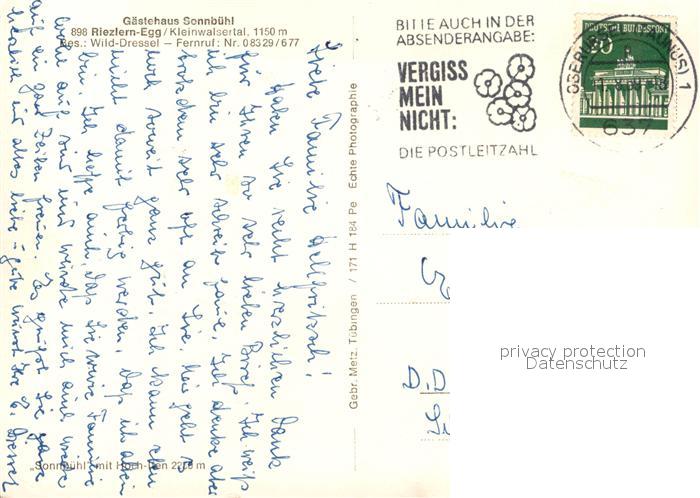 Gästehaus Sonnbühl
898 Riezlern-Egg / Kleinwalsertal, 1150 m
Bes.: Wild-Dressel — Fernruf: Nr. 08329/677
Liebe Familie
Haben Sie recht herzlichen Dank
für Ihren so sehr lieben Brief. Ich weiß
ich bin sehr schreib faul. Ich denke aber
trotzdem sehr oft an Sie. Mir geht es
auch soweit ganz gut. Ich kann eben
nicht damit fertig werden, daß ich allein
bin. Ich hoffe auch, daß Sie Familie
wohl auf sind und würde mich auch wieder
auf ein paar Zeilen freuen. Es grüßt Sie ganz
herzlich nur alles liebe u. gute wünscht Ihre
„Sonnbühl" mit Hoch-Ifen 2230 m
Gebr. Metz, Tübingen / 171 H 184 Pe Echte Photographie
BITTE AUCH IN DER
ABSENDERANGABE:
VERGISS
MEIN
NICHT:
DIE POSTLEITZAHL
DEUTSCHE BUNDESPOST
20
(TAUNUS) 1
637
Familie
D.D
privacy protection
Datenschutz